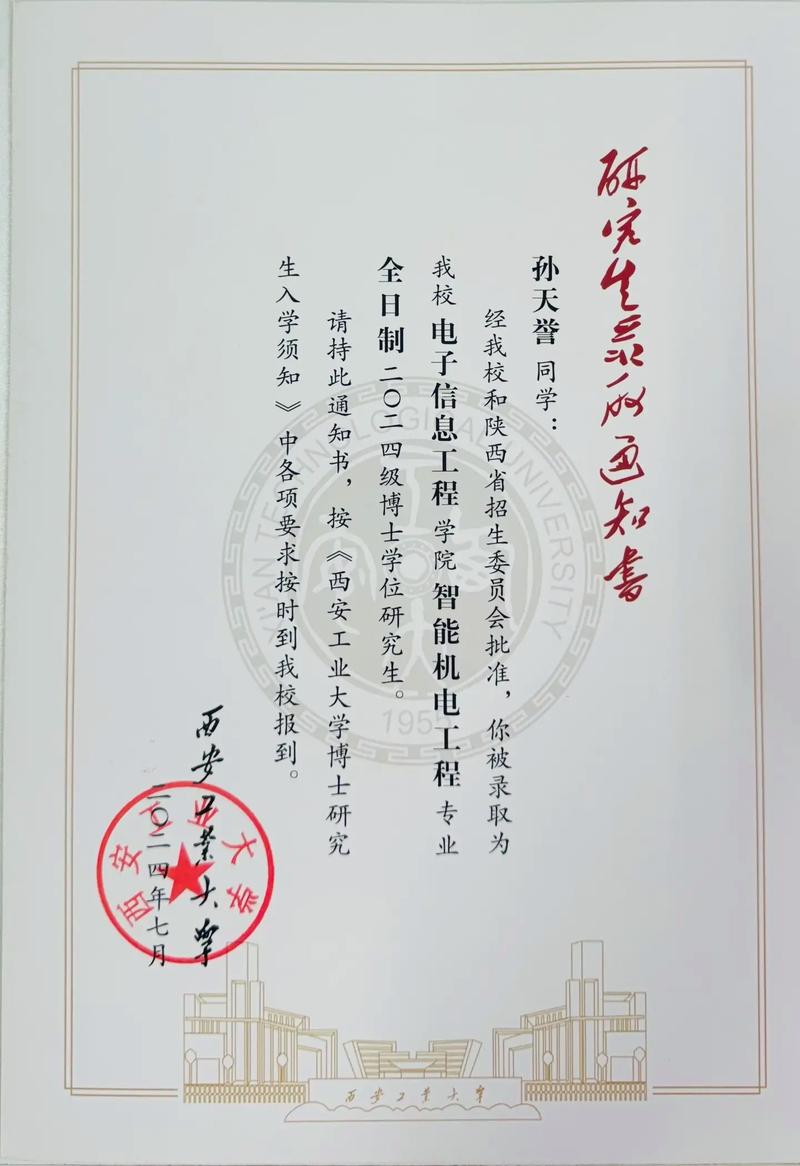 研究生录取通知书
孙天誉 同学：
经我校和陕西省招生委员会批准，你被录取为
我校 电子信息工程 学院 智能机电工程 专业
全日制 二〇二四级博士学位研究生。
请持此通知书，按《西安工业大学博士研究
生入学须知》中各项要求按时到我校报到。
西安工业大学
二〇二四年七月
西安工业大学
XI'AN TECHNOLOGICAL UNIVERSITY
1955
西安工业大学